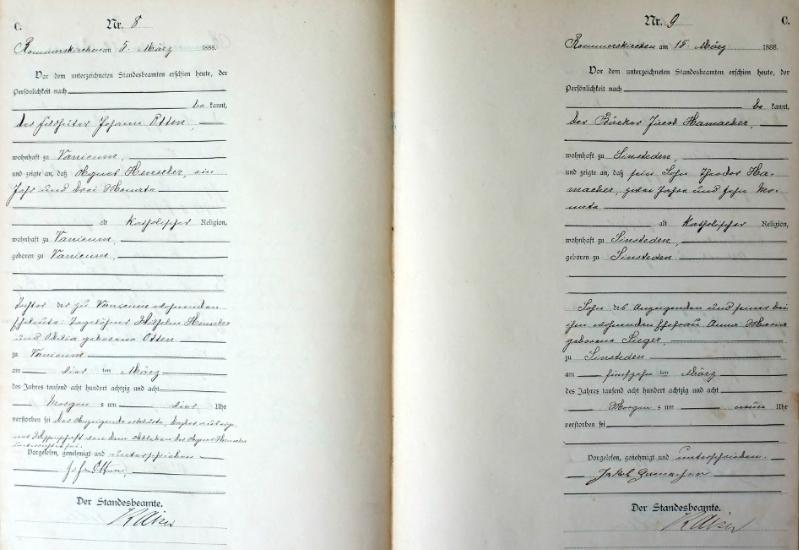 C. Nr. 8
Rommerskirchen am 5. März 1888.
Vor dem unterzeichneten Standesbeamten erschien heute, der
Persönlichkeit nach
be kannt,
der Feldhüter Johann Otten
wohnhaft zu Vanicum,
und zeigte an, daß Agnes, ein
Jahr und drei Monate
alt Katholischer Religion,
wohnhaft zu Vanicum,
geboren zu Vanicum,
Tochter der zu Vanicum wohnenden
Eheleute: Tagelöhner Wilhelm
und geborene Otten
zu Vanicum
am vier ten März
des Jahres tausend acht hundert achtzig und acht
Morgens um vier Uhr
verstorben sei
Vorgelesen, genehmigt und unterschrieben
Joh. Otten
Der Standesbeamte.
Nr. 9 C.
Rommerskirchen am 15. März 1888.
Vor dem unterzeichneten Standesbeamten erschien heute, der
Persönlichkeit nach
be kannt,
der Bäcker Jacob Hamacher,
wohnhaft zu Sinsteden,
und zeigte an, daß sein Sohn Theodor Ha-
macher, zwei Jahre und zehn Mo-
nate
alt Katholischer Religion,
wohnhaft zu Sinsteden,
geboren zu Sinsteden
Sohn des Anzeigenden und seiner bei
ihm wohnenden Ehefrau Anna Maria
geborene Sieger,
zu Sinsteden
am fünfzehn ten März
des Jahres tausend acht hundert achtzig und acht
Morgens um neun Uhr
verstorben sei
Vorgelesen, genehmigt und unterschrieben.
Jakob Hamacher
Der Standesbeamte.